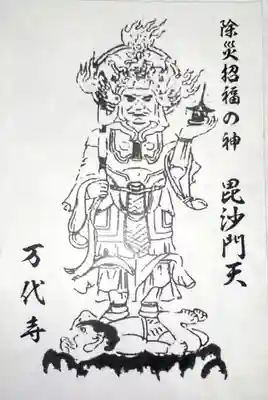 除災招福の神
毘沙門天
万代寺